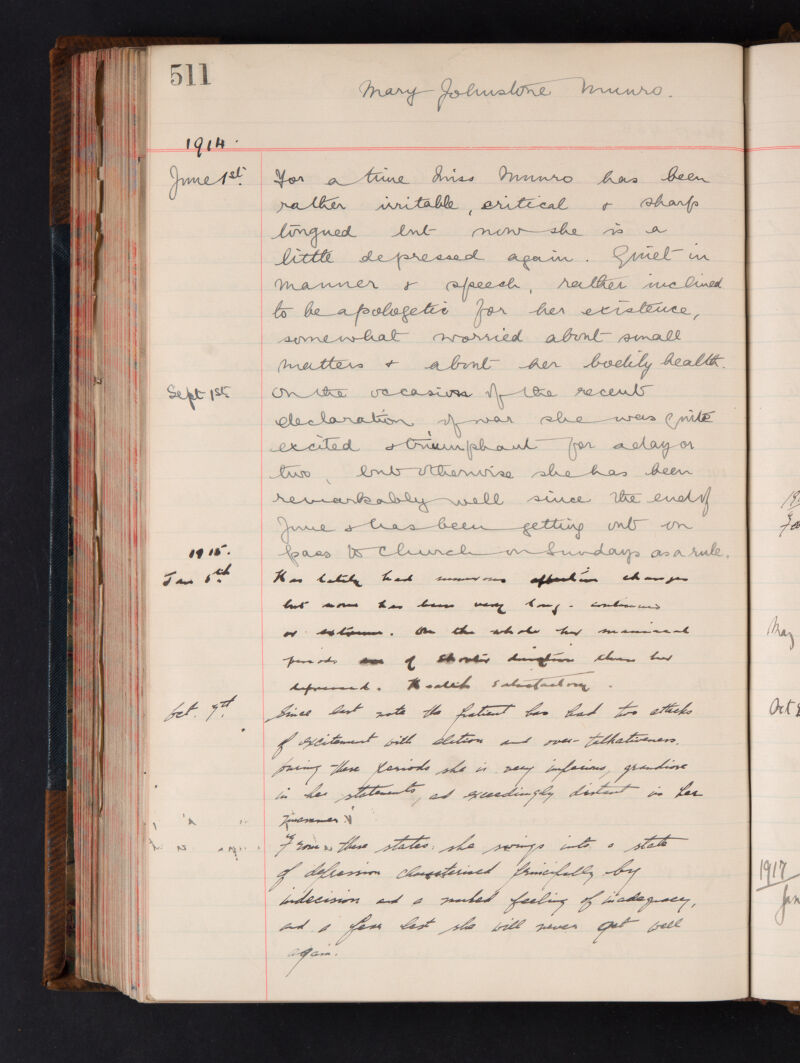 511
Mary Johnstone Munro.
1914.
June 1st. For a time Miss Munro has been
rather irritable, critical & sharp
tongued but now she is a
little depressed again. Quiet in
manner & speech, rather inclined
to be apologetic for her existence,
somewhat worried about small
matters & about her bodily health.
Sept 1st On the occasion of the recent
declaration of war she was quite
excited & triumphant for a day or
two, but otherwise she has been
remarkably well since the end of
June & has been getting out on
1915. pass to Church on Sundays as a rule.
Jan 6th Has lately had numerous affective changes
but none has been very long-continued
or extreme. On the whole her maniacal
periods are of shorter duration than her
depressed. Health satisfactory.
Oct. 9th. Since last note the patient has had two attacks
of excitement with elation and over-talkativeness.
During these periods she is very, grandiose
in her statements, and exceedingly distant in her
manner.
From these states she swings into a state
of depression characterised principally by
indecision and a marked feeling of inadequacy,
and a fear lest she will never get well
again.
May
Oct
1917
Jan